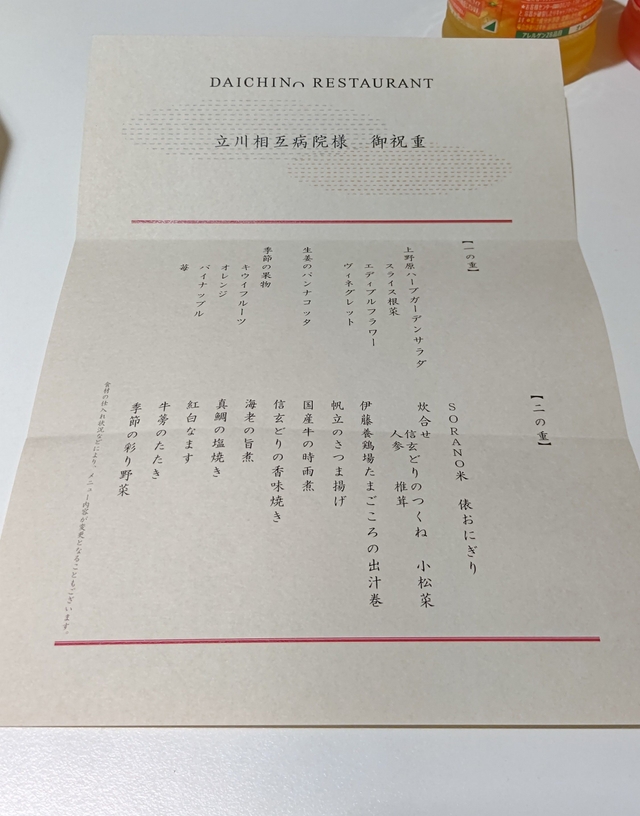 DAICHINO RESTAURANT
立川相互病院様　御祝重
【一の重】
上野原ハーブガーデンサラダ
スライス根菜
エディブルフラワー
ヴィネグレット
生姜のパンナコッタ
季節の果物
キウイフルーツ
オレンジ
パイナップル
苺
【二の重】
SORANO米　俵おにぎり
炊合せ
信玄どりのつくね　小松菜
人参　椎茸
伊藤養鶏場たまごころの出汁巻
帆立のさつま揚げ
国産牛の時雨煮
信玄どりの香味焼き
海老の旨煮
真鯛の塩焼き
紅白なます
牛蒡のたたき
季節の彩り野菜
食材の仕入れ状況などにより、メニュー内容が変更となることもございます。
アレルゲン(28品目)